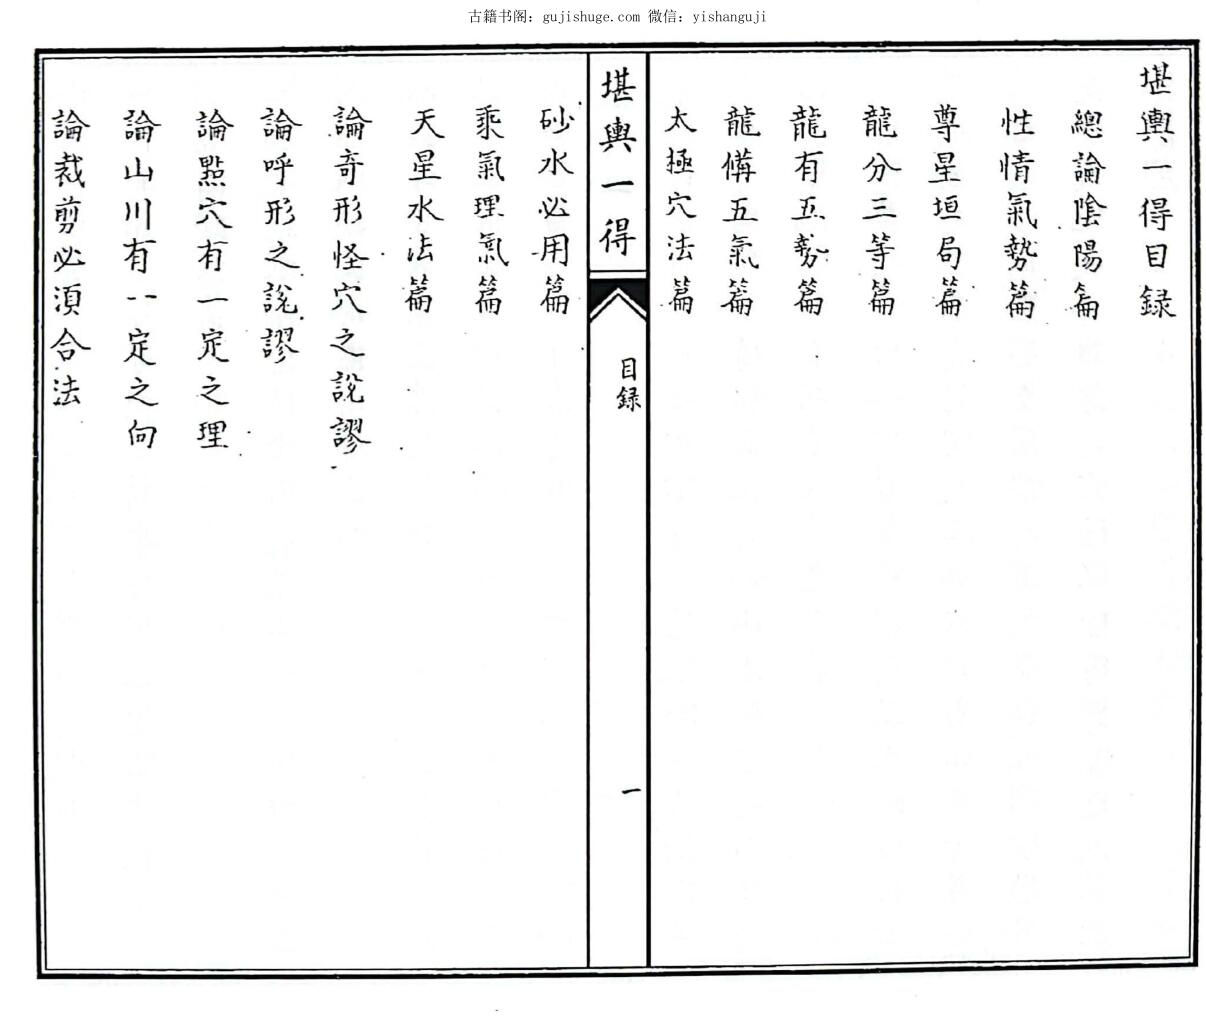 古籍书阁：gujishuge.com 微信：yishanguji
堪輿一得目録
總論陰陽篇
性情氣勢篇
尊星垣局篇
龍分三等篇
龍有五勢篇
龍備五氣篇
太極穴法篇
堪輿一得
目録
一
砂水必用篇
乘氣理氣篇
天星水法篇
論奇形怪穴之說謬
論呼形之說謬
論點穴有一定之理
論山川有一定之向
論裁剪必須合法